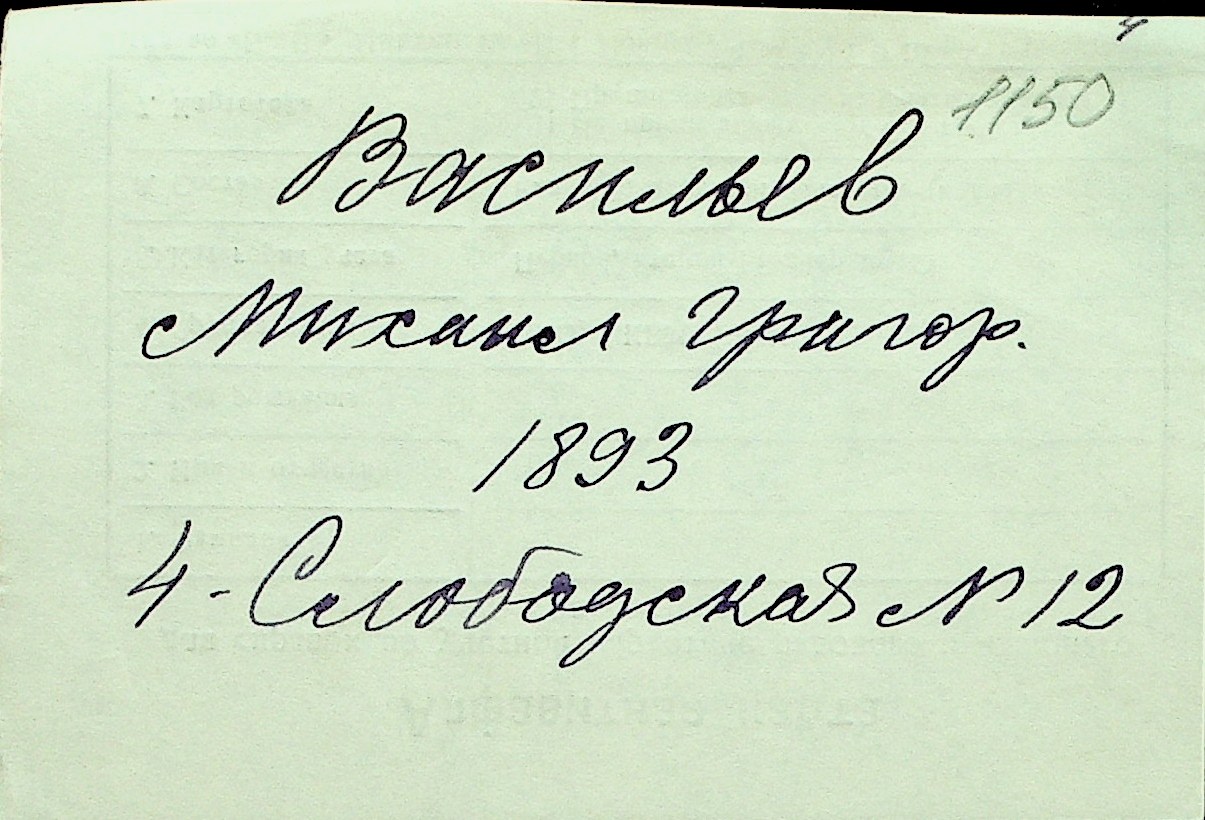 1150
Васильев
Михаил Григор.
1893
4-Слободская N 12